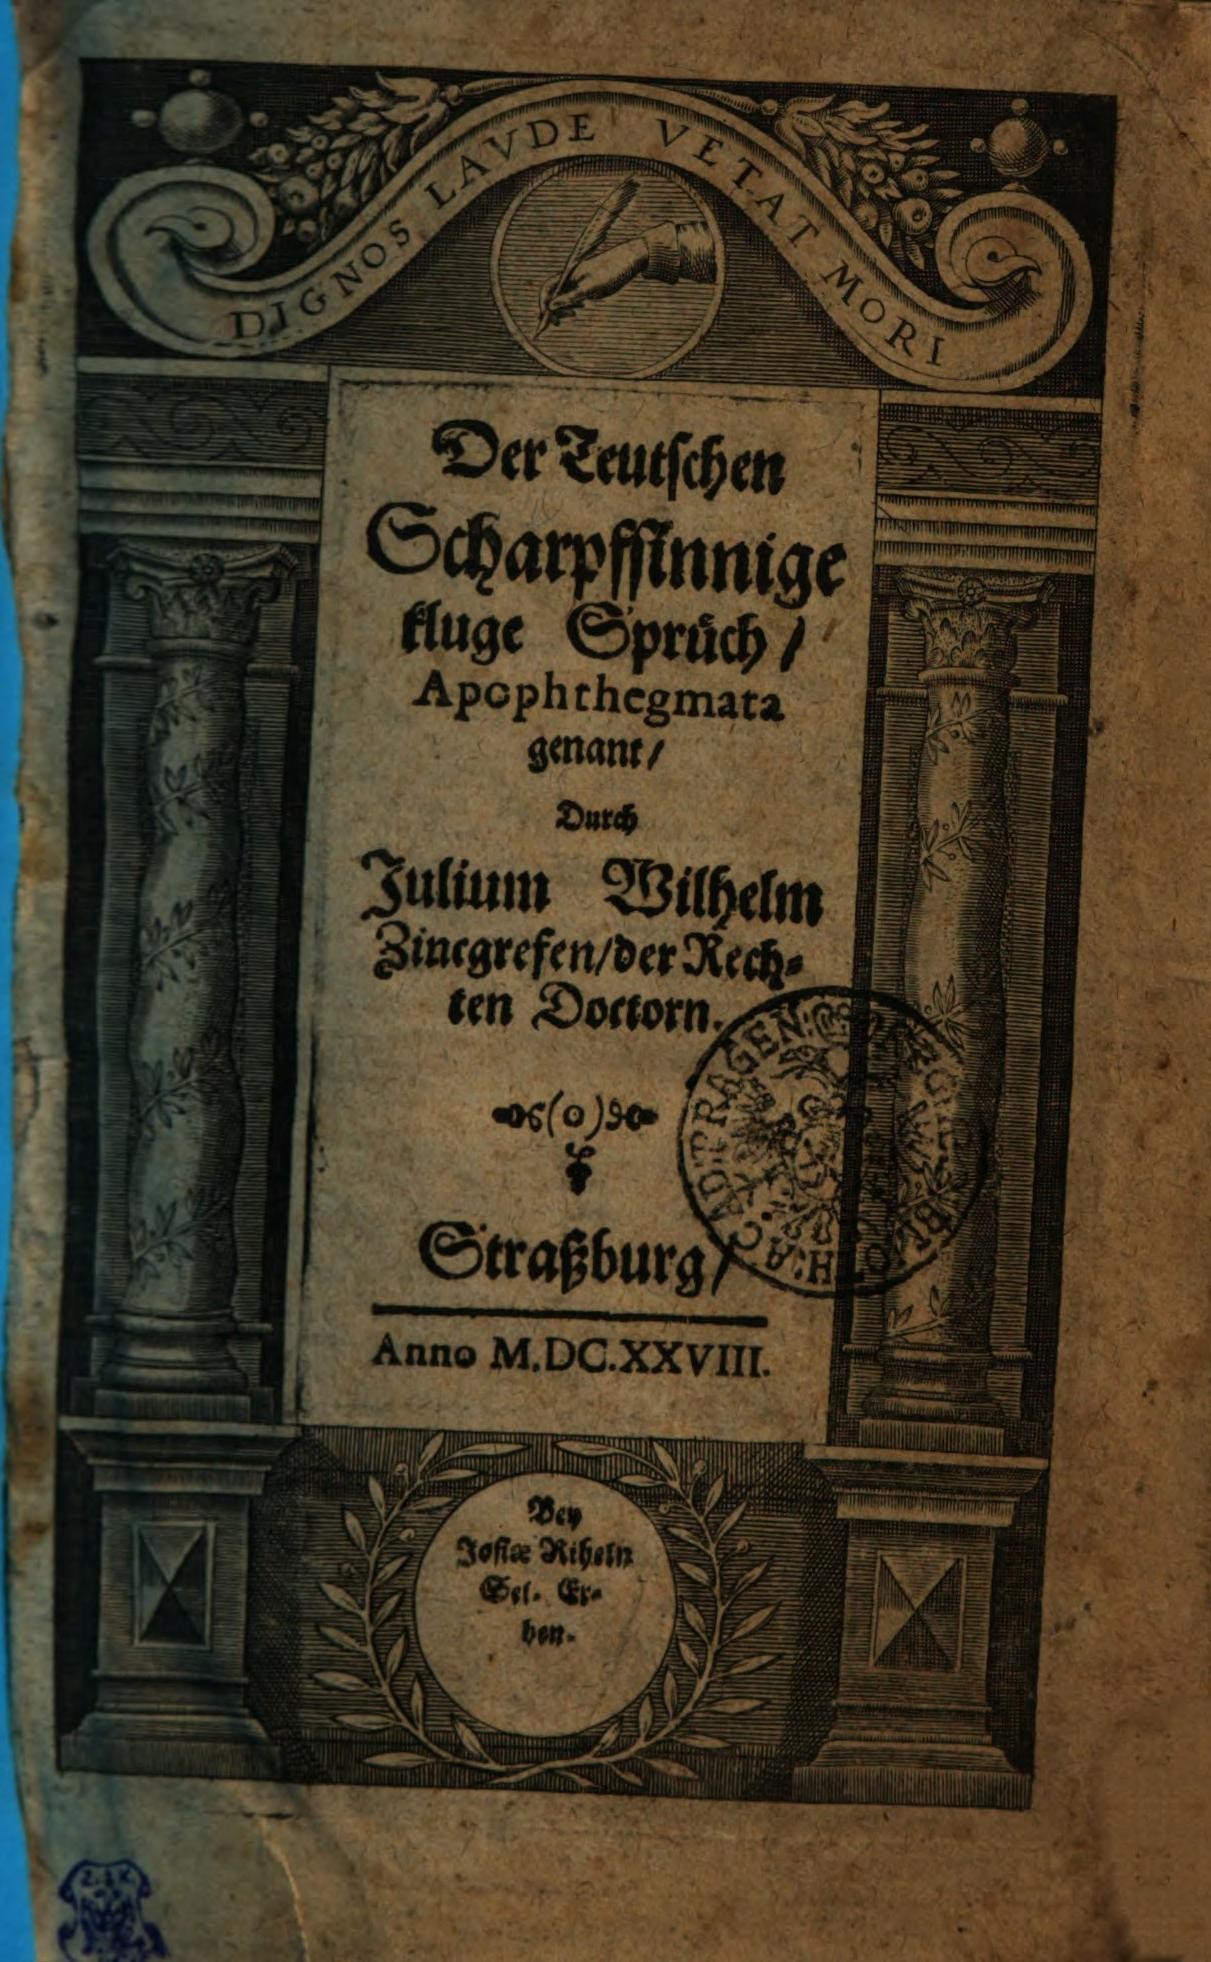 DIGNOS LAVDE VETAT MORI
Der Teutschen
Scharpfsinnige
kluge Sprüch /
Apophthegmata
genant /
Durch
Julium Wilhelm
Zincgrefen / der Rech-
ten Doctorn.
(o)
Straßburg /
Anno M.DC.XXVIII.
Bey
Josiæ Riheln
Sel. Er-
ben.
AD TRAGEN: